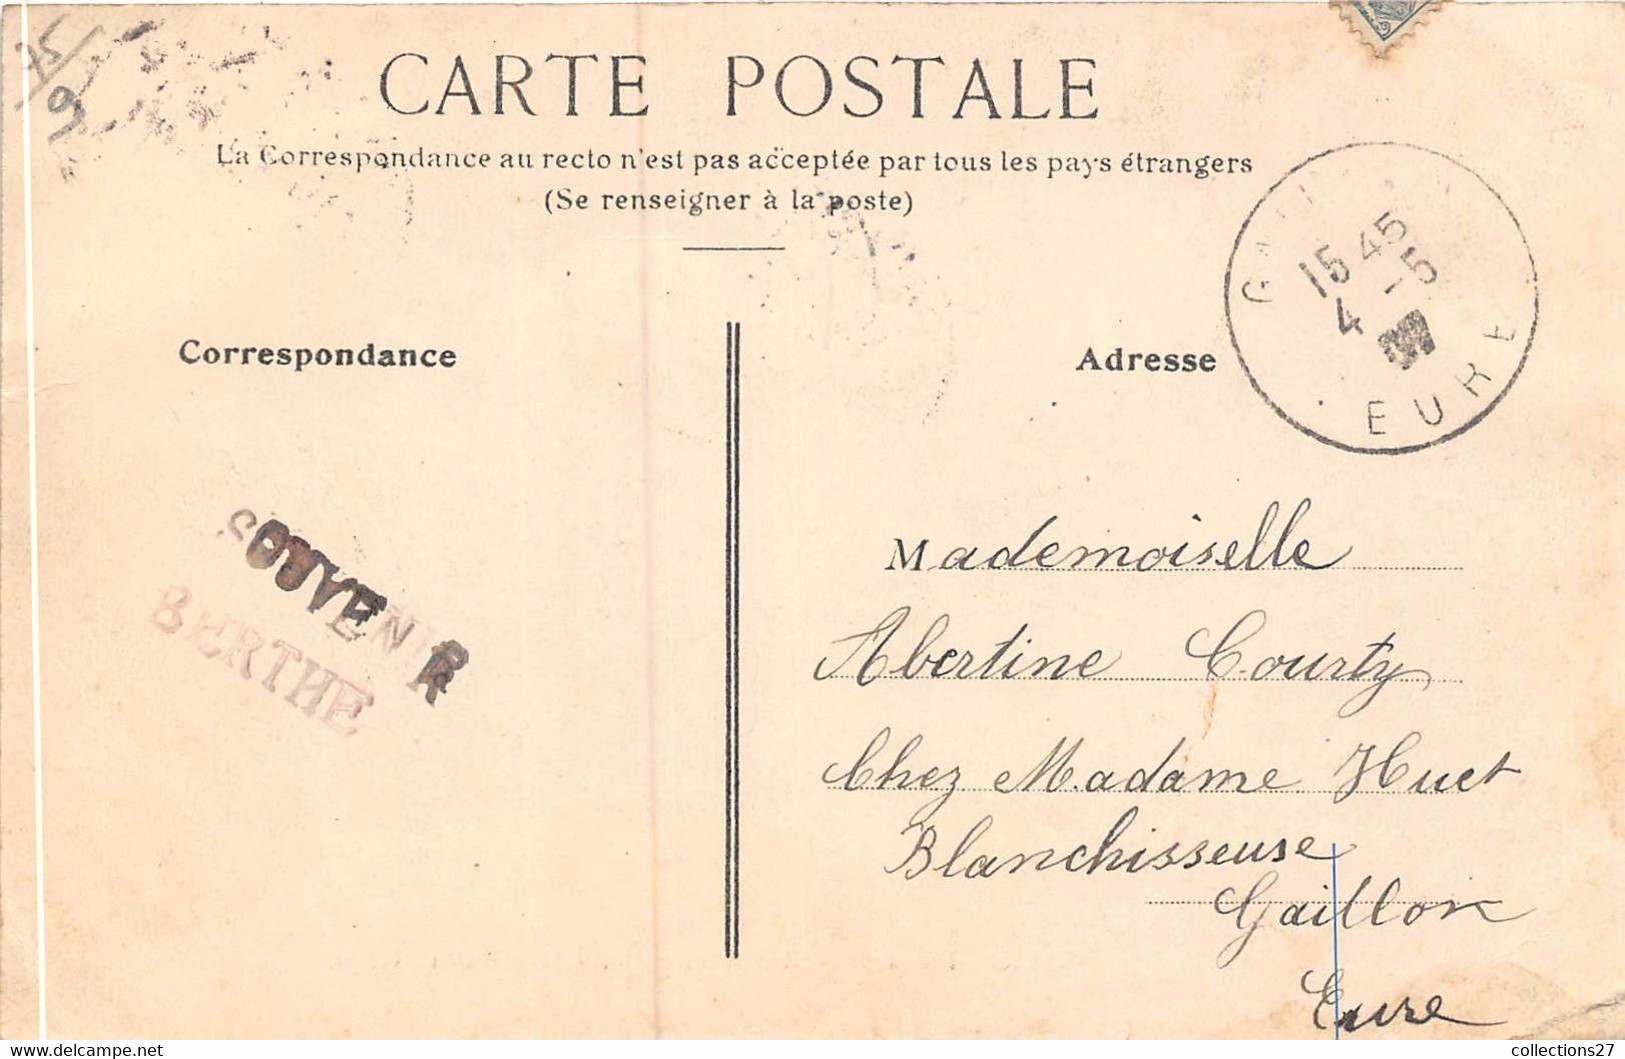 75/
9
CARTE POSTALE
La Correspondance au recto n'est pas acceptée par tous les pays étrangers
(Se renseigner à la poste)
15 45
4 -5
EURE
Correspondance
Adresse
SOUVENIR
BERTHE
Mademoiselle
Abertine Courty
Chez Madame Huet
Blanchisseuse
Gaillon
Eure
collections27